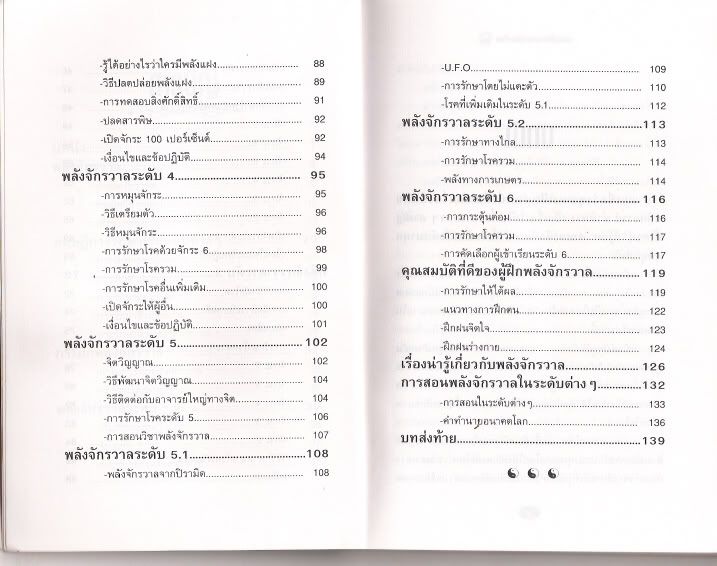 -รู้ได้อย่างไรว่าใครมีพลังแฝง.............................. 88
-วิธีปลดปล่อยพลังแฝง.................................... 89
-การทดสอบสิ่งศักดิ์สิทธิ์.................................. 91
-ปลดสารพิษ............................................... 92
-เปิดจักระ 100 เปอร์เซ็นต์................................ 92
-เงื่อนไขและข้อปฏิบัติ..................................... 94
พลังจักรวาลระดับ 4............................ 95
-การหมุนจักระ............................................ 95
-วิธีเตรียมตัว............................................... 96
-วิธีหมุนจักระ.............................................. 96
-การรักษาโรคด้วยจักระ 6............................... 98
-การรักษาโรครวม........................................ 99
-การรักษาโรคอื่นเพิ่มเติม................................ 100
-เปิดจักระให้ผู้อื่น.......................................... 100
-เงื่อนไขและข้อปฏิบัติ..................................... 101
พลังจักรวาลระดับ 5............................ 102
-จิตวิญญาณ............................................... 102
-วิธีพัฒนาจิตวิญญาณ..................................... 104
-วิธีติดต่อกับอาจารย์ใหญ่ทางจิต........................ 104
-การรักษาโรคระดับ 5.................................... 106
-การสอนวิชาพลังจักรวาล................................ 107
พลังจักรวาลระดับ 5.1.......................... 108
-พลังจักรวาลจากปิรามิด................................. 108
-U.F.O...................................................... 109
-การรักษาโดยไม่แตะตัว.................................. 110
-โรคที่เพิ่มเติมในระดับ 5.1............................... 112
พลังจักรวาลระดับ 5.2.......................... 113
-การรักษาทางไกล........................................ 113
-การรักษาโรครวม........................................ 114
-พลังทางการเกษตร...................................... 114
พลังจักรวาลระดับ 6............................ 116
-การกระตุ้นต่อม.......................................... 116
-การรักษาโรครวม........................................ 117
-การคัดเลือกผู้เข้าเรียนระดับ 6......................... 117
คุณสมบัติที่ดีของผู้ฝึกพลังจักรวาล............. 119
-การรักษาให้ได้ผล........................................ 119
-แนวทางการฝึกตน....................................... 122
-ฝึกฝนจิตใจ............................................... 123
-ฝึกฝนร่างกาย............................................ 124
เรื่องน่ารู้เกี่ยวกับพลังจักรวาล.................. 126
การสอนพลังจักรวาลในระดับต่าง ๆ........... 132
-การสอนในระดับต่างๆ.................................... 133
-คำทำนายอนาคตโลก.................................... 136
บทส่งท้าย........................................ 139